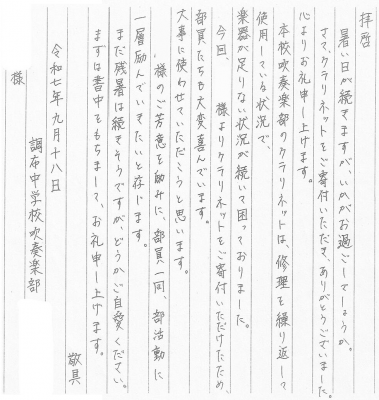 拝啓
暑い日が続きますが、いかがお過ごしでしょうか。
さて、クラリネットをご寄付いただき、ありがとうございました。
心よりお礼申し上げます。
本校吹奏楽部のクラリネットは、修理を繰り返して
使用している状況で、
楽器が足りない状況が続いて困っておりました。
今回、 様よりクラリネットをご寄付いただけたため、
部員たちも大変喜んでいます。
大事に使わせていただこうと思います。
様のご芳意を励みに、部員一同、部活動に
一層励んでいきたいと存じます。
まだ残暑は続きそうですが、どうかご自愛ください。
まずは書中をもちまして、お礼申し上げます。
敬具
令和七年九月十八日
調布中学校吹奏楽部
様